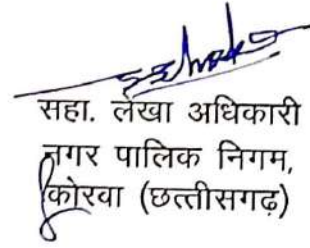 सहा. लेखा अधिकारी
नगर पालिक निगम,
कोरवा (छत्तीसगढ़)